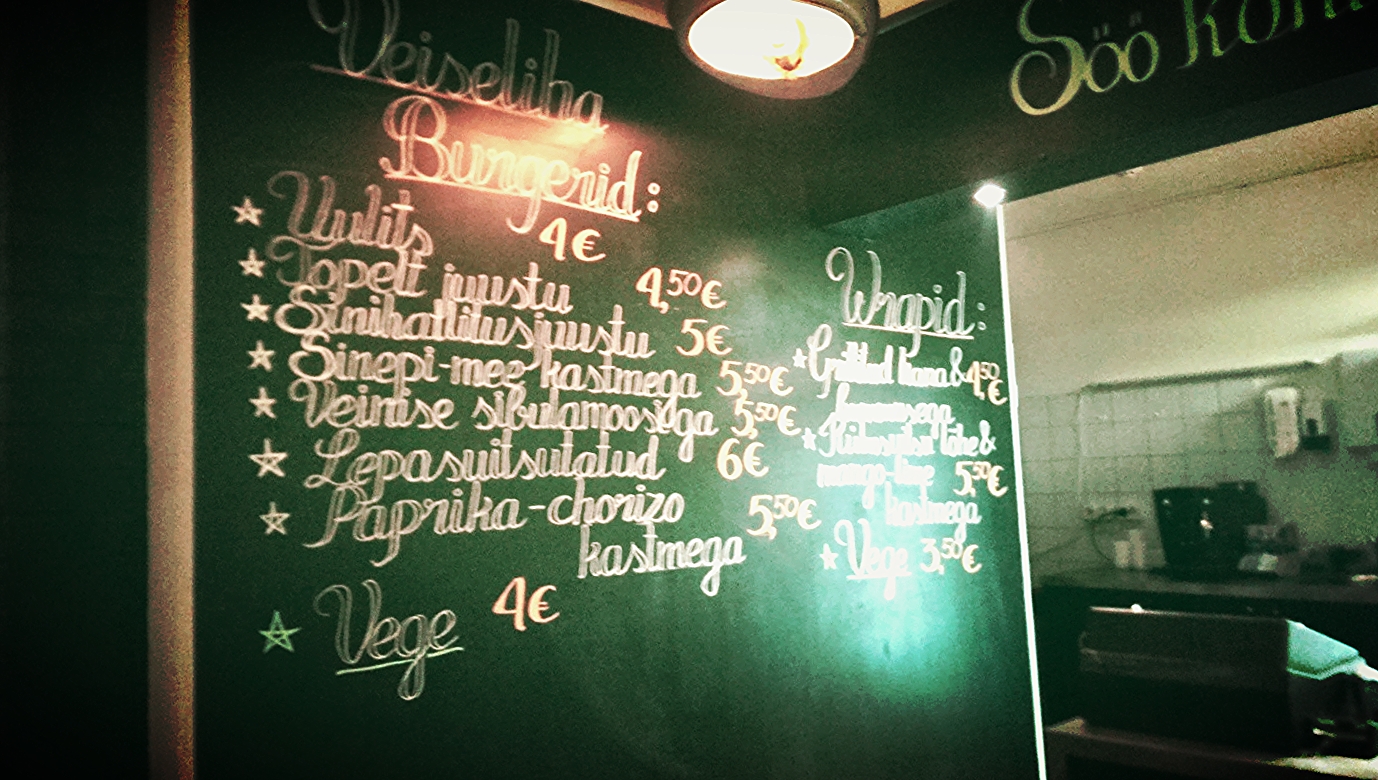 Veiseliha
Burgerid:
Uulits 4€
Topelt juustu 4,50€
Sinihallitusjuustu 5€
Sinepi-mee kastmega 5,50€
Veinise sibulamoosiga 5,50€
Lepasuitsutatud 6€
Paprika-chorizo 5,50€
kastmega
Vege 4€
Söö
Wrapid:
Grillitud kana & 4,50€
hummusega
Külmsuitsu lõhe &
mango-lime 5,50€
kastmega
Vege 3,50€